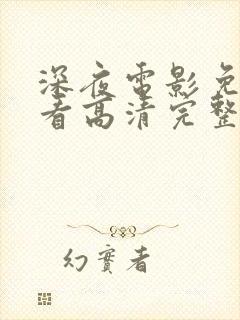 深夜電影免
看高清完整
幻實者